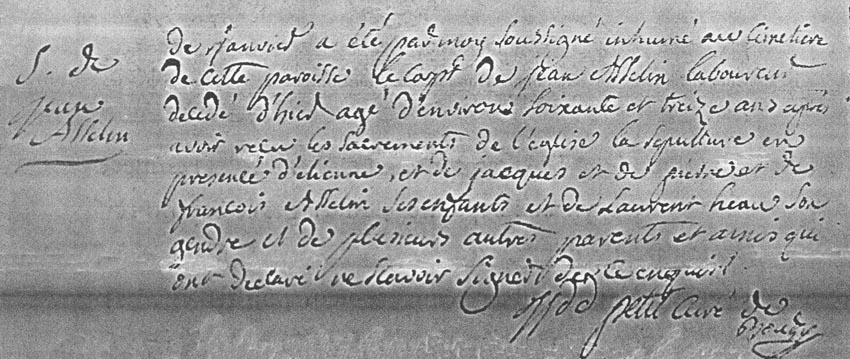 S. de
jean
Asselin
de janvier a été par moy soussigné inhumé au cimetière
de cette paroisse le corps de jean Asselin laboureur
decedé d'hier agé d'environ soixante et treize ans après
avoir reçu les sacrements de l'eglise la sepulture en
presence d'etienne, et de jacques et de pierre et de
francois Asselin ses enfants et de Laurent heau son
gendre et de plusieurs autres parents et amis qui
ont declaré ne scavoir signer de ce enquis.
petit curé de